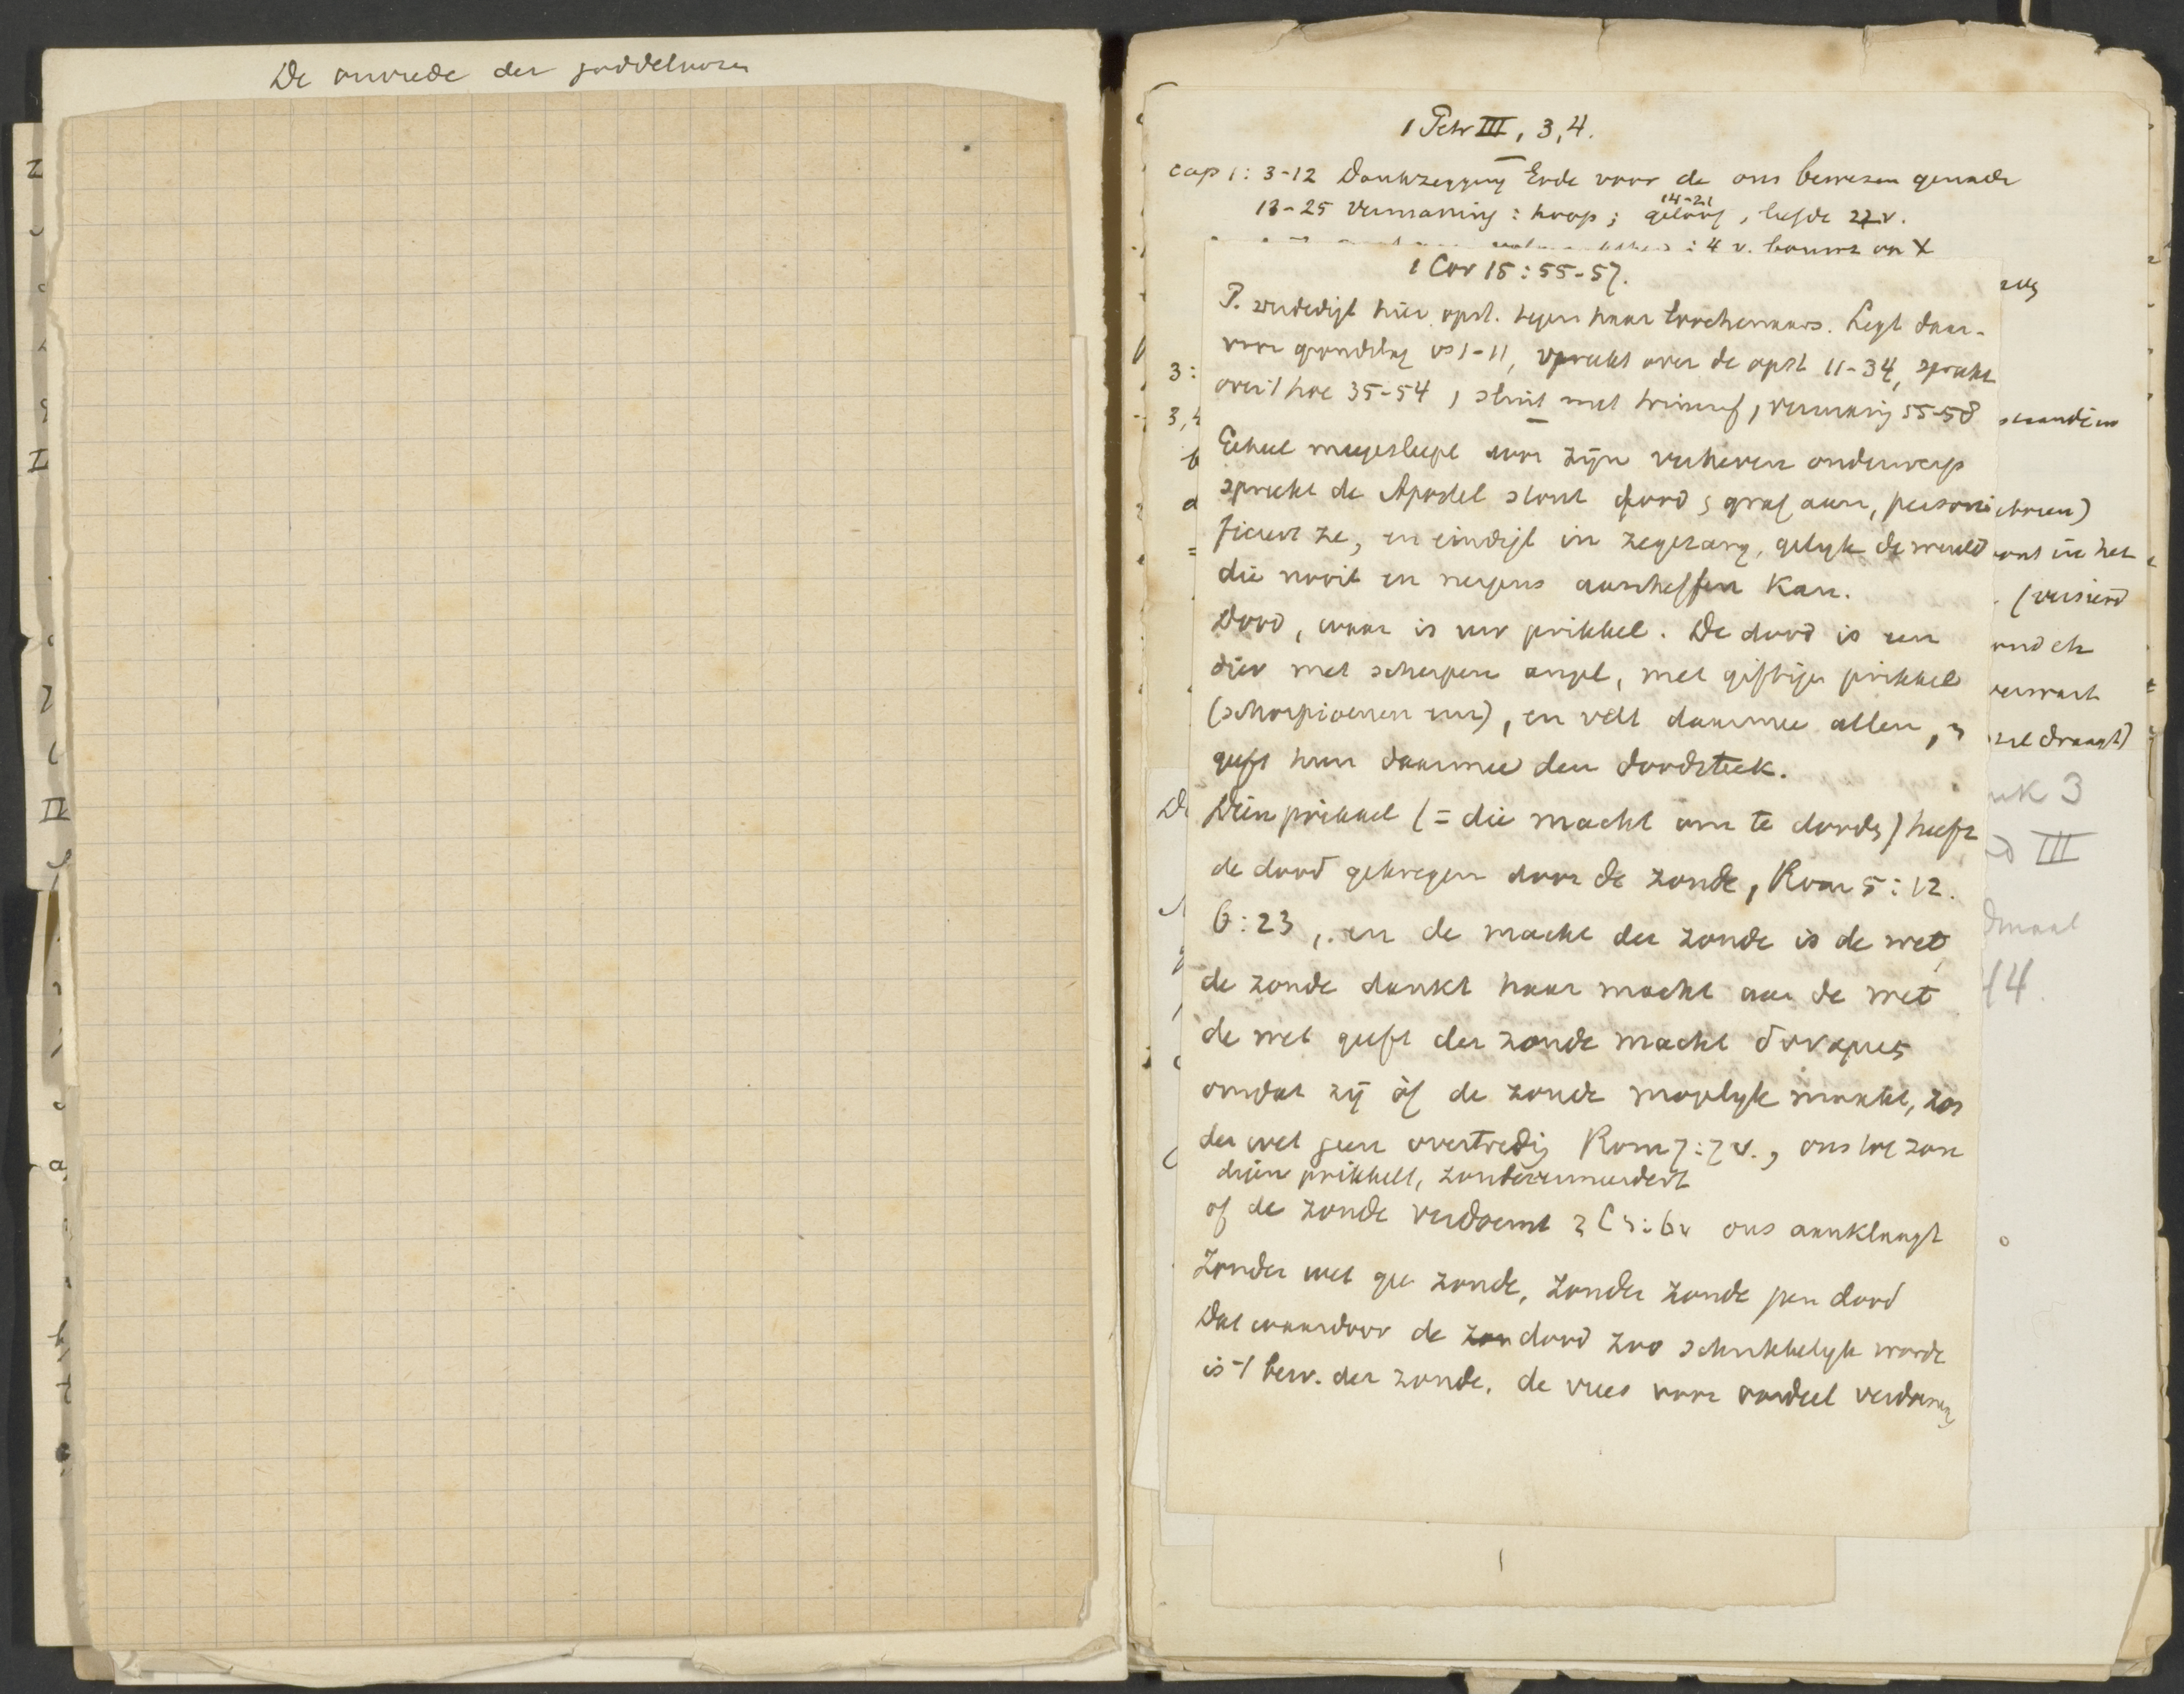 De onvrede der goddeloozen
1 Petr III, 3, 4.
cap 1: 3-12 Dankzegging Gode voor de ons bewezen genade
14-21
13-25 Vermaning: hoop; geloof, liefde 22 v.
: 4 v. bouwt op X
1 Cor 15: 55-57.
P. verdedigt hier opst. tegen haar loochenaars. Legt daar-
voor grondslag vs 1-11, spreekt over de opst 11-34, spreekt
over 't hoe 35-54, sluit met triumf, vermaning 55-58
Geheel meegesleept door zijn verheven onderwerp
spreekt de Apostel stout dood, graf aan, personi
ficeert ze, en eindigt in zegezang, gelijk de wereld
die nooit en nergens aanheffen kan.
Dood, waar is uw prikkel. De dood is een
dier met scherpen angel, met giftigen prikkel
(schorpioenen enz), en velt daarmee allen, en
geeft hun daarmee den doodsteek.
Dien prikkel (= die macht om te dooden) heeft
de dood gekregen door de zonde, Rom 5: 12.
6: 23, en de macht der zonde is de wet,
de zonde dankt haar macht aan de wet
de wet geeft der zonde macht δυναμις
omdat zij òf de zonde mogelijk maakt, zon
der wet geen overtreding Rom 7: 7 v., ons tot zon
digen prikkelt, zonde vermeerdert
of de zonde verdoemt 2 C 3: 6v ons aanklaagt
Zonder wet geen zonde, zonder zonde geen dood
Dat waardoor de zon dood zoo schrikkelijk wordt
is 't bew. der zonde, de vrees voor oordeel verdoeming
3:
standen
ont in het
(versierd
verwacht
zel draagt)
uk 3
III
dmaal
14.